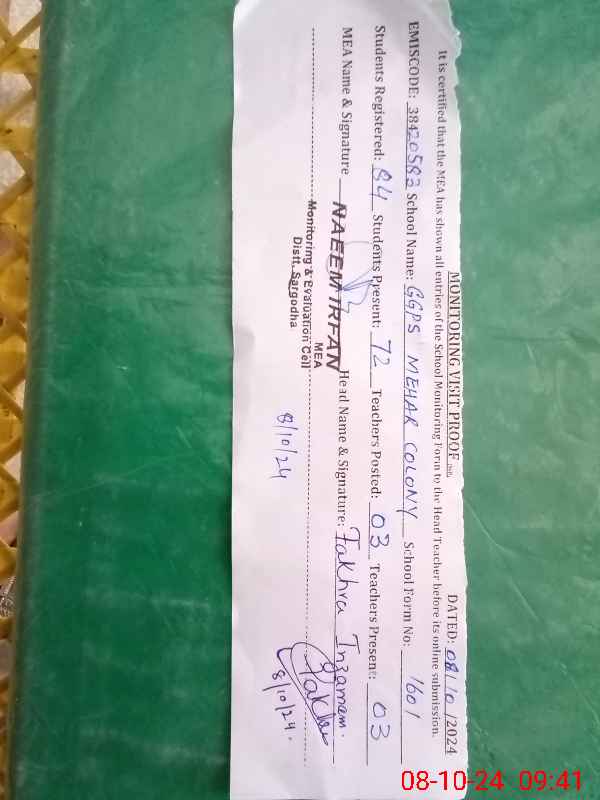 MONITORING VISIT PROOF
DATED: 08/10/2024
It is certified that the MEA has shown all entries of the School Monitoring Form to the Head Teacher before its online submission.
EMISCODE: 38420583 School Name: GGPS MEHAR COLONY School Form No: 1601
Students Registered: 84 Students Present: 72 Teachers Posted: 03 Teachers Present: 03
MEA Name & Signature Head Name & Signature: Fakhra Inzamam.
NAEEM IRFAN
MEA
Monitoring & Evaluation Cell
Distt. Sargodha
8/10/24
8/10/24.
08-10-24 09:41